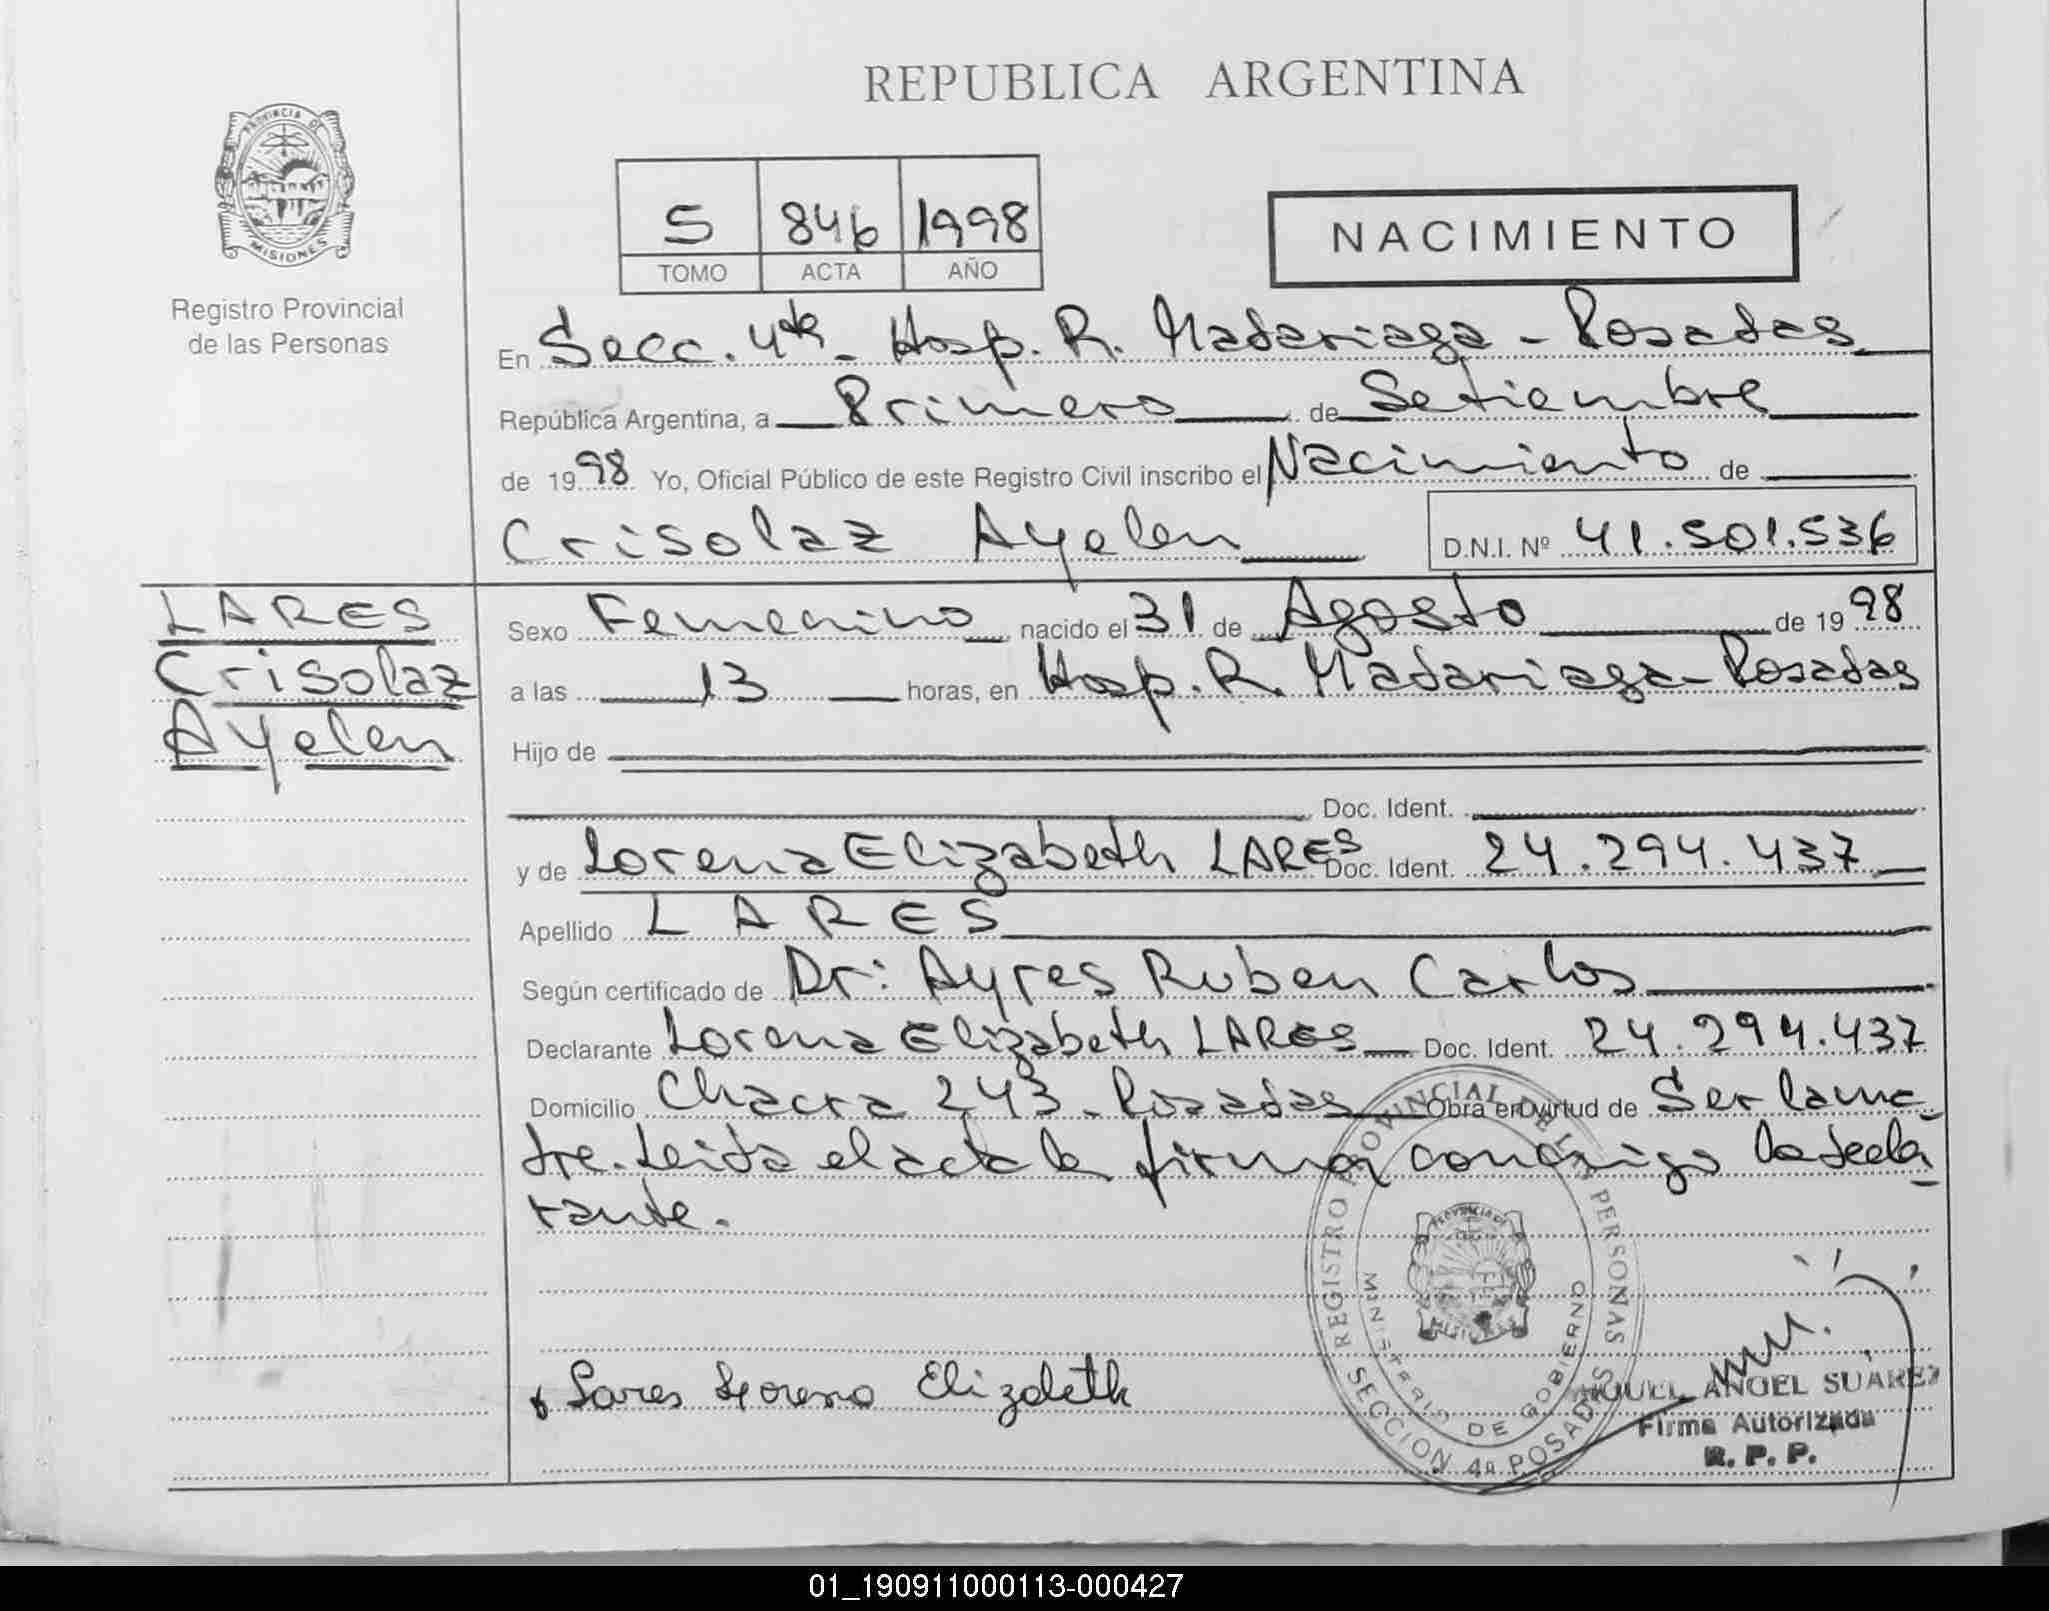 REPUBLICA ARGENTINA
PROVINCIA DE
MISIONES
Registro Provincial
de las Personas
S 846 1998
TOMO ACTA AÑO
NACIMIENTO
En Secc. 4ta - Hosp. R. Madariaga - Posadas
República Argentina, a Primero de Setiembre
de 1998 Yo, Oficial Público de este Registro Civil inscribo el Nacimiento de
Crisolaz Ayelen D.N.I. Nº 41.501.536
LARES
Crisolaz
Ayelen
Sexo Femenino nacido el 31 de Agosto de 1998
a las 13 horas, en Hosp. R. Madariaga - Posadas
Hijo de
Doc. Ident.
y de Lorena Elizabeth LARES Doc. Ident. 24.294.437
Apellido LARES
Según certificado de Dr: Ayres Ruben Carlos
Declarante Lorena Elizabeth LARES Doc. Ident. 24.294.437
Domicilio Chacra 243 - Posadas Obra en virtud de Ser la ma-
dre. Leida el acta la firma conmigo la decla-
rante.
Lares Lorena Elizabeth
REGISTRO PROVINCIAL DE LAS PERSONAS
MINISTERIO DE GOBIERNO
SECCION 4a POSADAS
MIGUEL ANGEL SUAREZ
Firma Autorizada
R. P. P.
01_190911000113-000427